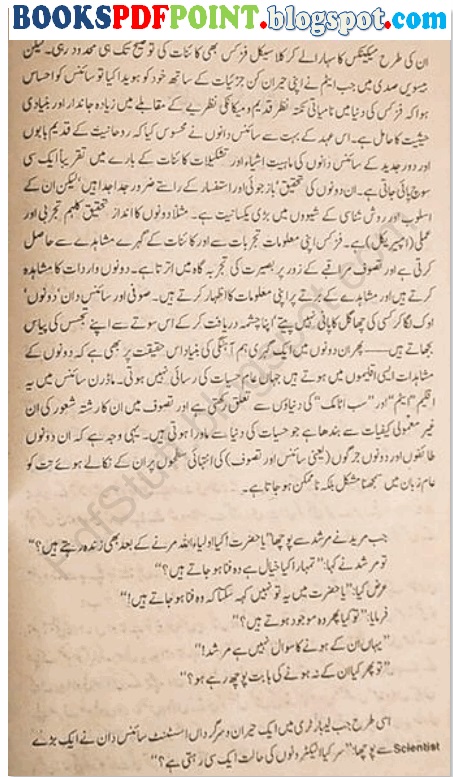 BOOKSPDFPOINT.blogspot.com
ان کی طرح میکینکس کا سہارا لے کر کلاسیکل فزکس بھی کائنات کی توضیح تک ہی محدود رہی۔ لیکن
بیسویں صدی میں جب ایٹم نے اپنی حیران کن جزئیات کے ساتھ خود کو ہویدا کیا تو سائنس کو احساس
ہوا کہ فزکس کی دنیا میں نامیاتی نکتہ نظر قدیم و میکانکی نظریے کے مقابلے میں زیادہ جاندار اور بنیادی
حیثیت کا حامل ہے۔ اس عہد کے بہت سے سائنس دانوں نے محسوس کیا کہ روحانیت کے قدیم بابوں
اور دور جدید کے سائنس دانوں کی ماہیت اشیاء اور تشکیلات کائنات کے بارے میں تقریباً ایک سی
سوچ پائی جاتی ہے۔ ان دونوں کی تحقیق، باز جوئی اور استفسار کے راستے ضرور جدا جدا ہیں، لیکن ان کے
اسلوب اور روش شناسی کے شیووں میں بڑی یکسانیت ہے۔ مثلاً دونوں کا انداز تحقیق کلیم تجربی اور
عملی (ایمپیریکل) ہے۔ فزکس اپنی معلومات تجربات سے اور کائنات کے گہرے مشاہدے سے حاصل
کرتی ہے اور تصوف مراقبے کے زور پر بصیرت کی تجربہ گاہ میں اترتا ہے۔ دونوں واردات کا مشاہدہ
کرتے ہیں اور مشاہدے کے برتے پر اپنی معلومات کا اظہار کرتے ہیں۔ صوفی اور سائنس دان، دونوں،
اوک لگا کر کسی کی چھاگل کا پانی نہیں پیتے، اپنا چشمہ دریافت کر کے اس سوتے سے اپنے تجسس کی پیاس
بجھاتے ہیں —— پھر ان دونوں میں ایک گہری ہم آہنگی کی بنیاد اس حقیقت پر بھی ہے کہ دونوں کے
مشاہدات ایسی اقلیموں میں ہوتے ہیں جہاں عام حسیات کی رسائی نہیں ہوتی۔ ماڈرن سائنس میں یہ
اقلیم "ایٹم" اور "سب اٹامک" کی دنیاؤں سے تعلق رکھتی ہے اور تصوف میں ان کا رشتہ شعور کی ان
غیر معمولی کیفیات سے بندھا ہے جو حسیات کی دنیا سے ماورا ہوتی ہیں۔ یہی وجہ ہے کہ ان دونوں
طائفوں اور دونوں جرگوں (یعنی سائنس اور تصوف) کی انتہائی سطحوں پر ان کے نکالے ہوئے تت کو
عام زبان میں سمجھنا مشکل بلکہ ناممکن ہو جاتا ہے۔
جب مرید نے مرشد سے پوچھا "یا حضرت! کیا اولیاء اللہ مرنے کے بعد بھی زندہ رہتے ہیں؟"
تو مرشد نے کہا: "تمہارا کیا خیال ہے وہ فنا ہو جاتے ہیں؟"
عرض کیا: "یا حضرت میں یہ تو نہیں کہہ سکتا کہ وہ فنا ہو جاتے ہیں!"
فرمایا: "تو کیا پھر وہ موجود ہوتے ہیں؟"
"یہاں ان کے ہونے کا سوال نہیں ہے مرشد!"
"تو پھر کیا ان کے نہ ہونے کی بابت پوچھ رہے ہو؟"
اسی طرح جب لیبارٹری میں ایک حیران و سرگرداں اسسٹنٹ سائنس دان نے ایک بڑے
Scientist سے پوچھا: "سر کیا الیکٹرونوں کی حالت ایک سی رہتی ہے؟"